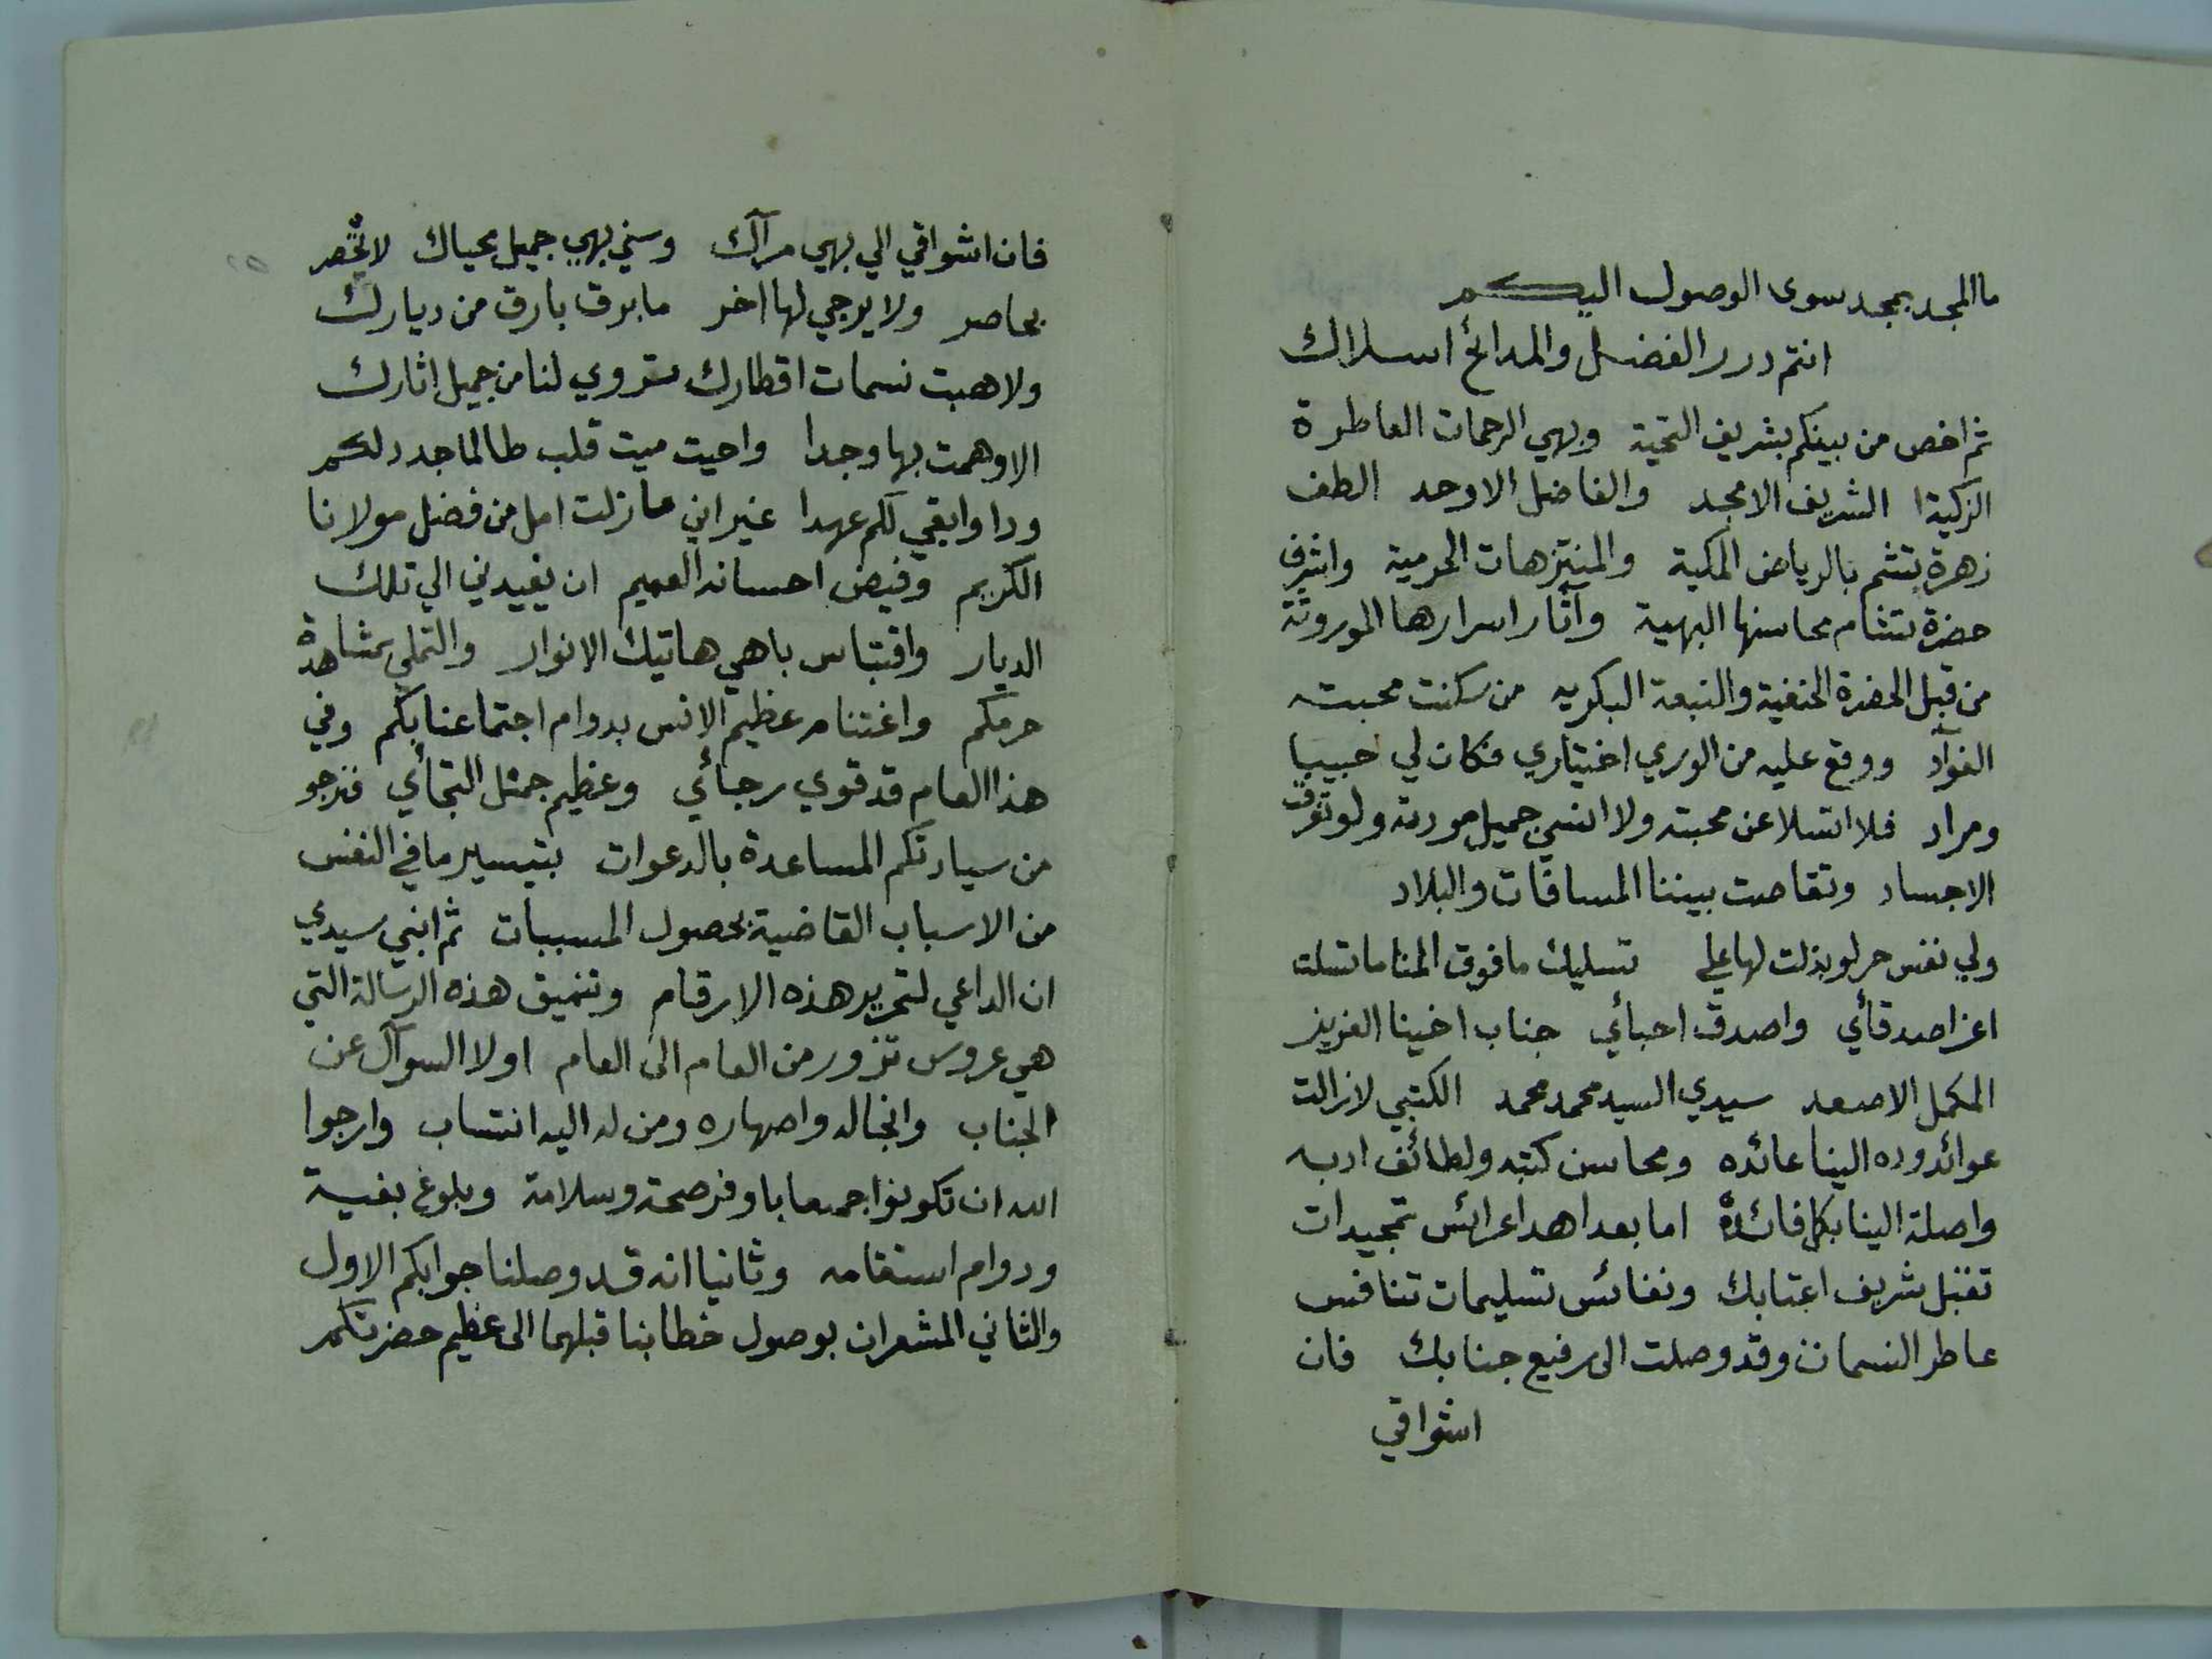 ما المجد بمجد سوى الوصول اليكم
انتم درر الفضل والمدائح اسلاك
ثم اخص من بينكم بشريف التحية وبهي الرحمات العاطرة
الزكية الشريف الامجد والفاضل الاوحد الطف
زهرة تشم بالرياض المكية والمنتزهات الحرمية واشرف
حضرة تشام محاسنها البهية وآثار اسرارها الموروثة
من قبل الحضرة الحنفية والنبعة البكريه من سكنت محبته
الفوآد ووقع عليه من الوري اختياري فكان لي حبيبا
ومراد فلا اتسلا عن محبته ولا انسي جميل مودته ولو تفرقت
الاجساد وتقاصت بيننا المسافات والبلاد
ولي نفس حر لو بذلت لها علي تسليك ما فوق المنا ما تسلت
اعز اصدقأي واصدق احبائي جناب اخينا العزيز
المكمل الاصعد سيدي السيد محمد محمد الكتبي لازالت
عوائد وده الينا عائده ومحاسن كتبه ولطائف ادبه
واصلة الينا بكل فائدة اما بعد اهدا عرائس تمجيدات
تقبل شريف اعتابك ونفائس تسليمات تنافس
عاطر النسمات وقد وصلت الى رفيع جنابك فان
اشواقي
فان اشواقي الي بهي مرآك وسني بهي جميل محياك لا تحصر
بحاصر ولا يرجي لها اخر ما برق بارق من ديارك
ولا هبت نسمات اقطارك تروي لنا من جميل اثارك
الا وهمت بها وجدا واحيت ميت قلب طالما جدد لكم
ودا وابقي لكم عهدا غير اني ما زلت امل من فضل مولانا
الكريم وفيض احسانه العميم ان يعيدني الي تلك
الديار واقتباس باهي هاتيك الانوار والتملي بمشاهدة
حرمكم واغتنام عظيم الانس بدوام اجتماعنا بكم وفي
هذا العام قد قوي رجائي وعظيم التجأي فنرجو
من سيادتكم المساعدة بالدعوات بتيسير ما في النفس
من الاسباب القاضية بحصول المسببات ثم انني سيدي
ان الداعي لتحرير هذه الارقام وتنميق هذه الرسالة التي
هي عروس تزور من العام الى العام اولا السوآل عن
الجناب وانجاله واصهاره ومن له اليه انتساب وارجوا
الله ان تكونوا جميعا باوفر صحة وسلامة وبلوغ بغية
ودوام استقامه وثانيا انه قد وصلنا جوابكم الاول
والثاني المشعران بوصول خطابنا قبلهما الى عظيم حضرتكم